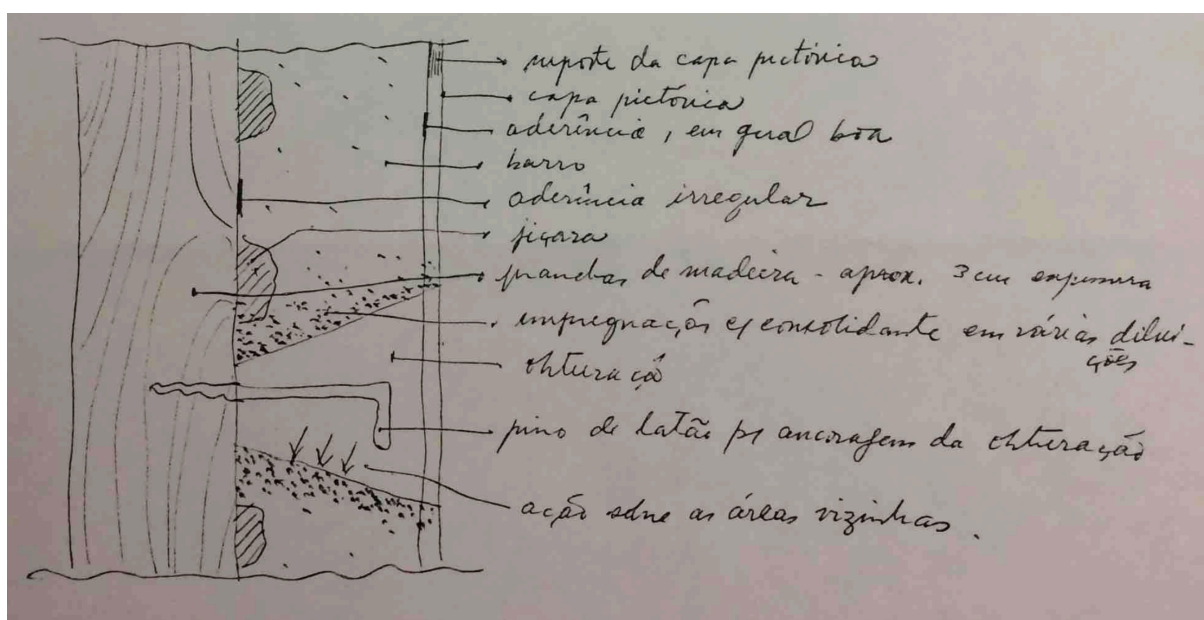 suporte da capa pictórica
capa pictórica
aderência, em geral boa
barro
aderência irregular
jiçara
pranchas de madeira - aprox. 3 cm espessura
impregnação c/ consolidante em várias dilui-
ções
obturação
pino de latão p/ ancoragem da obturação
ação sobre as áreas vizinhas.